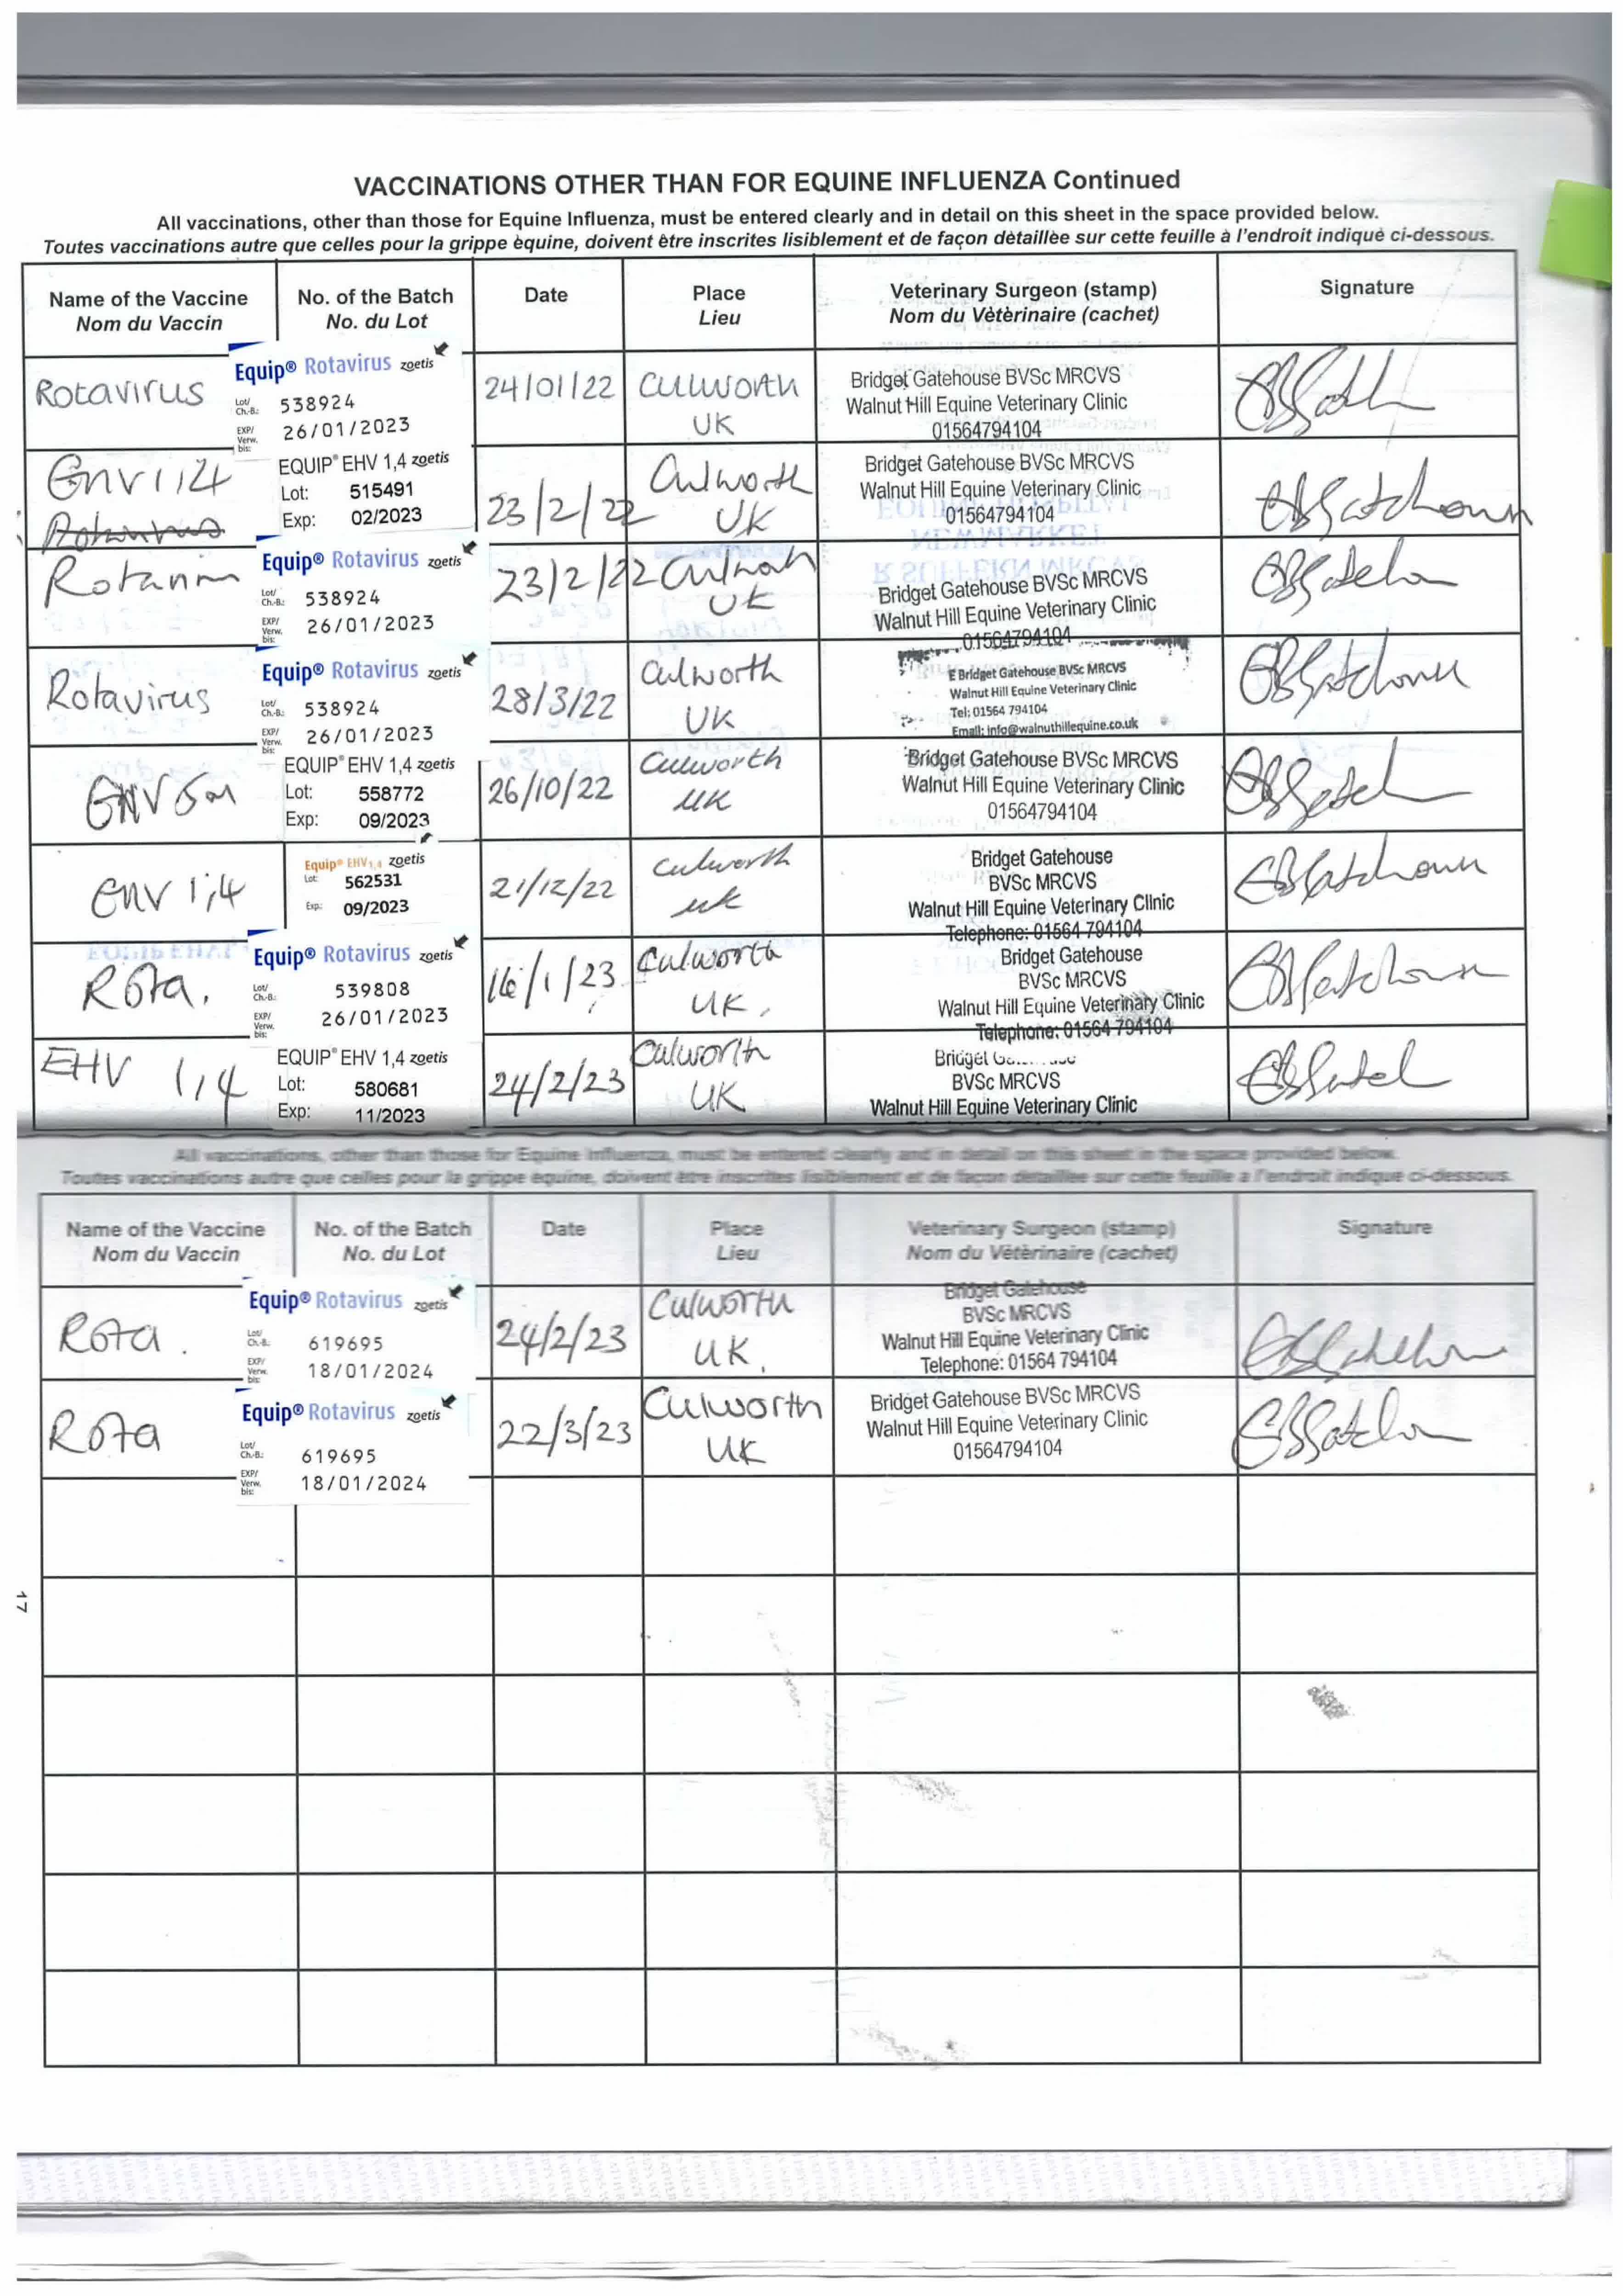 VACCINATIONS OTHER THAN FOR EQUINE INFLUENZA Continued
All vaccinations, other than those for Equine Influenza, must be entered clearly and in detail on this sheet in the space provided below.
Toutes vaccinations autre que celles pour la grippe èquine, doivent être inscrites lisiblement et de façon dètaillèe sur cette feuille à l'endroit indiquè ci-dessous.
Name of the Vaccine No. of the Batch Date Place Veterinary Surgeon (stamp) Signature
Nom du Vaccin No. du Lot Lieu Nom du Vètèrinaire (cachet)
Rotavirus
Equip® Rotavirus zoetis
Lot/ Ch.-B.: 538924
EXP/ Verw. bis: 26/01/2023
24/01/22
Culworth
UK
Bridget Gatehouse BVSc MRCVS
Walnut Hill Equine Veterinary Clinic
01564794104
EQUIP® EHV 1,4 zoetis
Lot: 515491
Exp: 02/2023
23/2/22
Culworth
UK
Bridget Gatehouse BVSc MRCVS
Walnut Hill Equine Veterinary Clinic
01564794104
Equip® Rotavirus zoetis
Lot/ Ch.-B.: 538924
EXP/ Verw. bis: 26/01/2023
23/2/22
UK
Bridget Gatehouse BVSc MRCVS
Walnut Hill Equine Veterinary Clinic
01564794104
Rotavirus
Equip® Rotavirus zoetis
Lot/ Ch.-B.: 538924
EXP/ Verw. bis: 26/01/2023
28/3/22
Culworth
UK
E Bridget Gatehouse BVSc MRCVS
Walnut Hill Equine Veterinary Clinic
Tel: 01564 794104
Email: info@walnuthillequine.co.uk
EQUIP® EHV 1,4 zoetis
Lot: 558772
Exp: 09/2023
26/10/22
Culworth
UK
Bridget Gatehouse BVSc MRCVS
Walnut Hill Equine Veterinary Clinic
01564794104
EHV 1,4
Equip® EHV 1,4 zoetis
Lot: 562531
Exp: 09/2023
21/12/22
Culworth
UK
Bridget Gatehouse
BVSc MRCVS
Walnut Hill Equine Veterinary Clinic
Telephone: 01564 794104
Rota.
Equip® Rotavirus zoetis
Lot/ Ch.-B.: 539808
EXP/ Verw. bis: 26/01/2023
Culworth
UK.
Bridget Gatehouse
BVSc MRCVS
Walnut Hill Equine Veterinary Clinic
Telephone: 01564 794104
EHV 1,4
EQUIP® EHV 1,4 zoetis
Lot: 580681
Exp: 11/2023
24/2/23
Culworth
UK
Bridget
BVSc MRCVS
Walnut Hill Equine Veterinary Clinic
All vaccinations, other than those for Equine Influenza, must be entered clearly and in detail on this sheet in the space provided below.
Toutes vaccinations autre que celles pour la grippe èquine, doivent être inscrites lisiblement et de façon dètaillèe sur cette feuille a l'endroit indique ci-dessous.
Name of the Vaccine No. of the Batch Date Place Veterinary Surgeon (stamp) Signature
Nom du Vaccin No. du Lot Lieu Nom du Vètèrinaire (cachet)
Rota.
Equip® Rotavirus zoetis
Lot/ Ch.-B.: 619695
EXP/ Verw. bis: 18/01/2024
24/2/23
Culworth
UK.
Bridget Gatehouse
BVSc MRCVS
Walnut Hill Equine Veterinary Clinic
Telephone: 01564 794104
Rota
Equip® Rotavirus zoetis
Lot/ Ch.-B.: 619695
EXP/ Verw. bis: 18/01/2024
22/3/23
Culworth
UK
Bridget Gatehouse BVSc MRCVS
Walnut Hill Equine Veterinary Clinic
01564794104
17